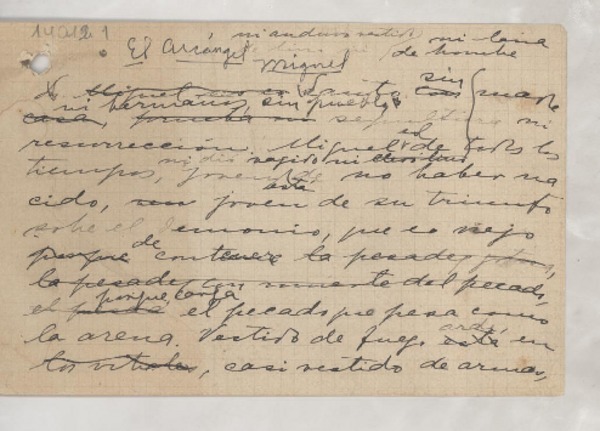 14012.1
ni anduvo vestido ni laña
de hombre
El Arcángel Miguel
sin
ni hermanos, sin pueblo
casa, sepultura ni
resurrección. Miguel el de todos los
ni dia vagido ni
tiempos, joven de no haber na
está
cido, joven de su triunfo
sobre el demonio, que es viejo
porque de contener la pesadez
la pesadez con muerte del pecado,
porque carga
el el pecado que pesa como
la arena. Vestido de fuego arde en
los vitrales, casi vestido de armas,